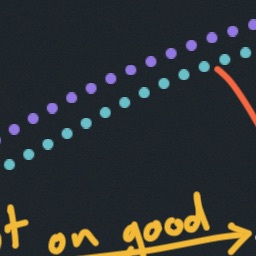 on good